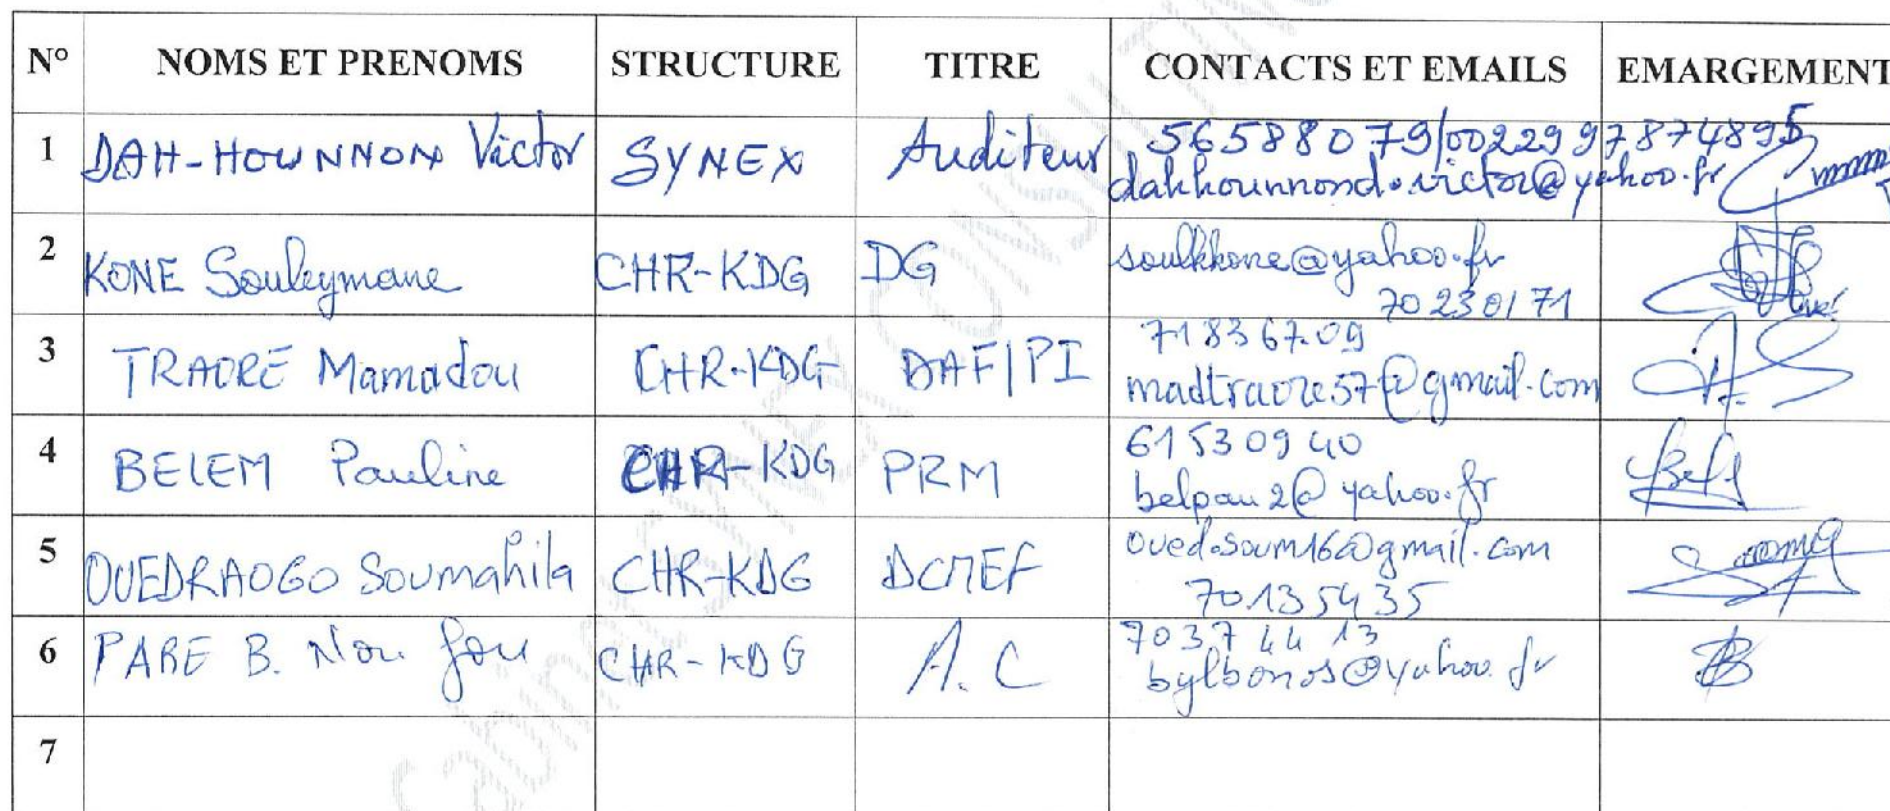 N° NOMS ET PRENOMS STRUCTURE TITRE CONTACTS ET EMAILS EMARGEMENT
1 DAH-HOUNNON Victor SYNEX Auditeur 56588079/0022997874895
dahhounnond.victor@yahoo.fr
2 KONE Souleymane CHR-KDG DG soulkkone@yahoo.fr
70230171
3 TRAORE Mamadou CHR-KDG DAF/PI 71836709
madtraore57@gmail.com
4 BELEM Pauline CHR-KDG PRM 61530940
belpau2@yahoo.fr
5 OUEDRAOGO Soumahila CHR-KDG DCMEF oued.soum16@gmail.com
70135435
6 PARE B. CHR-KDG A.C 70374413
bylbonos@yahoo.fr
7